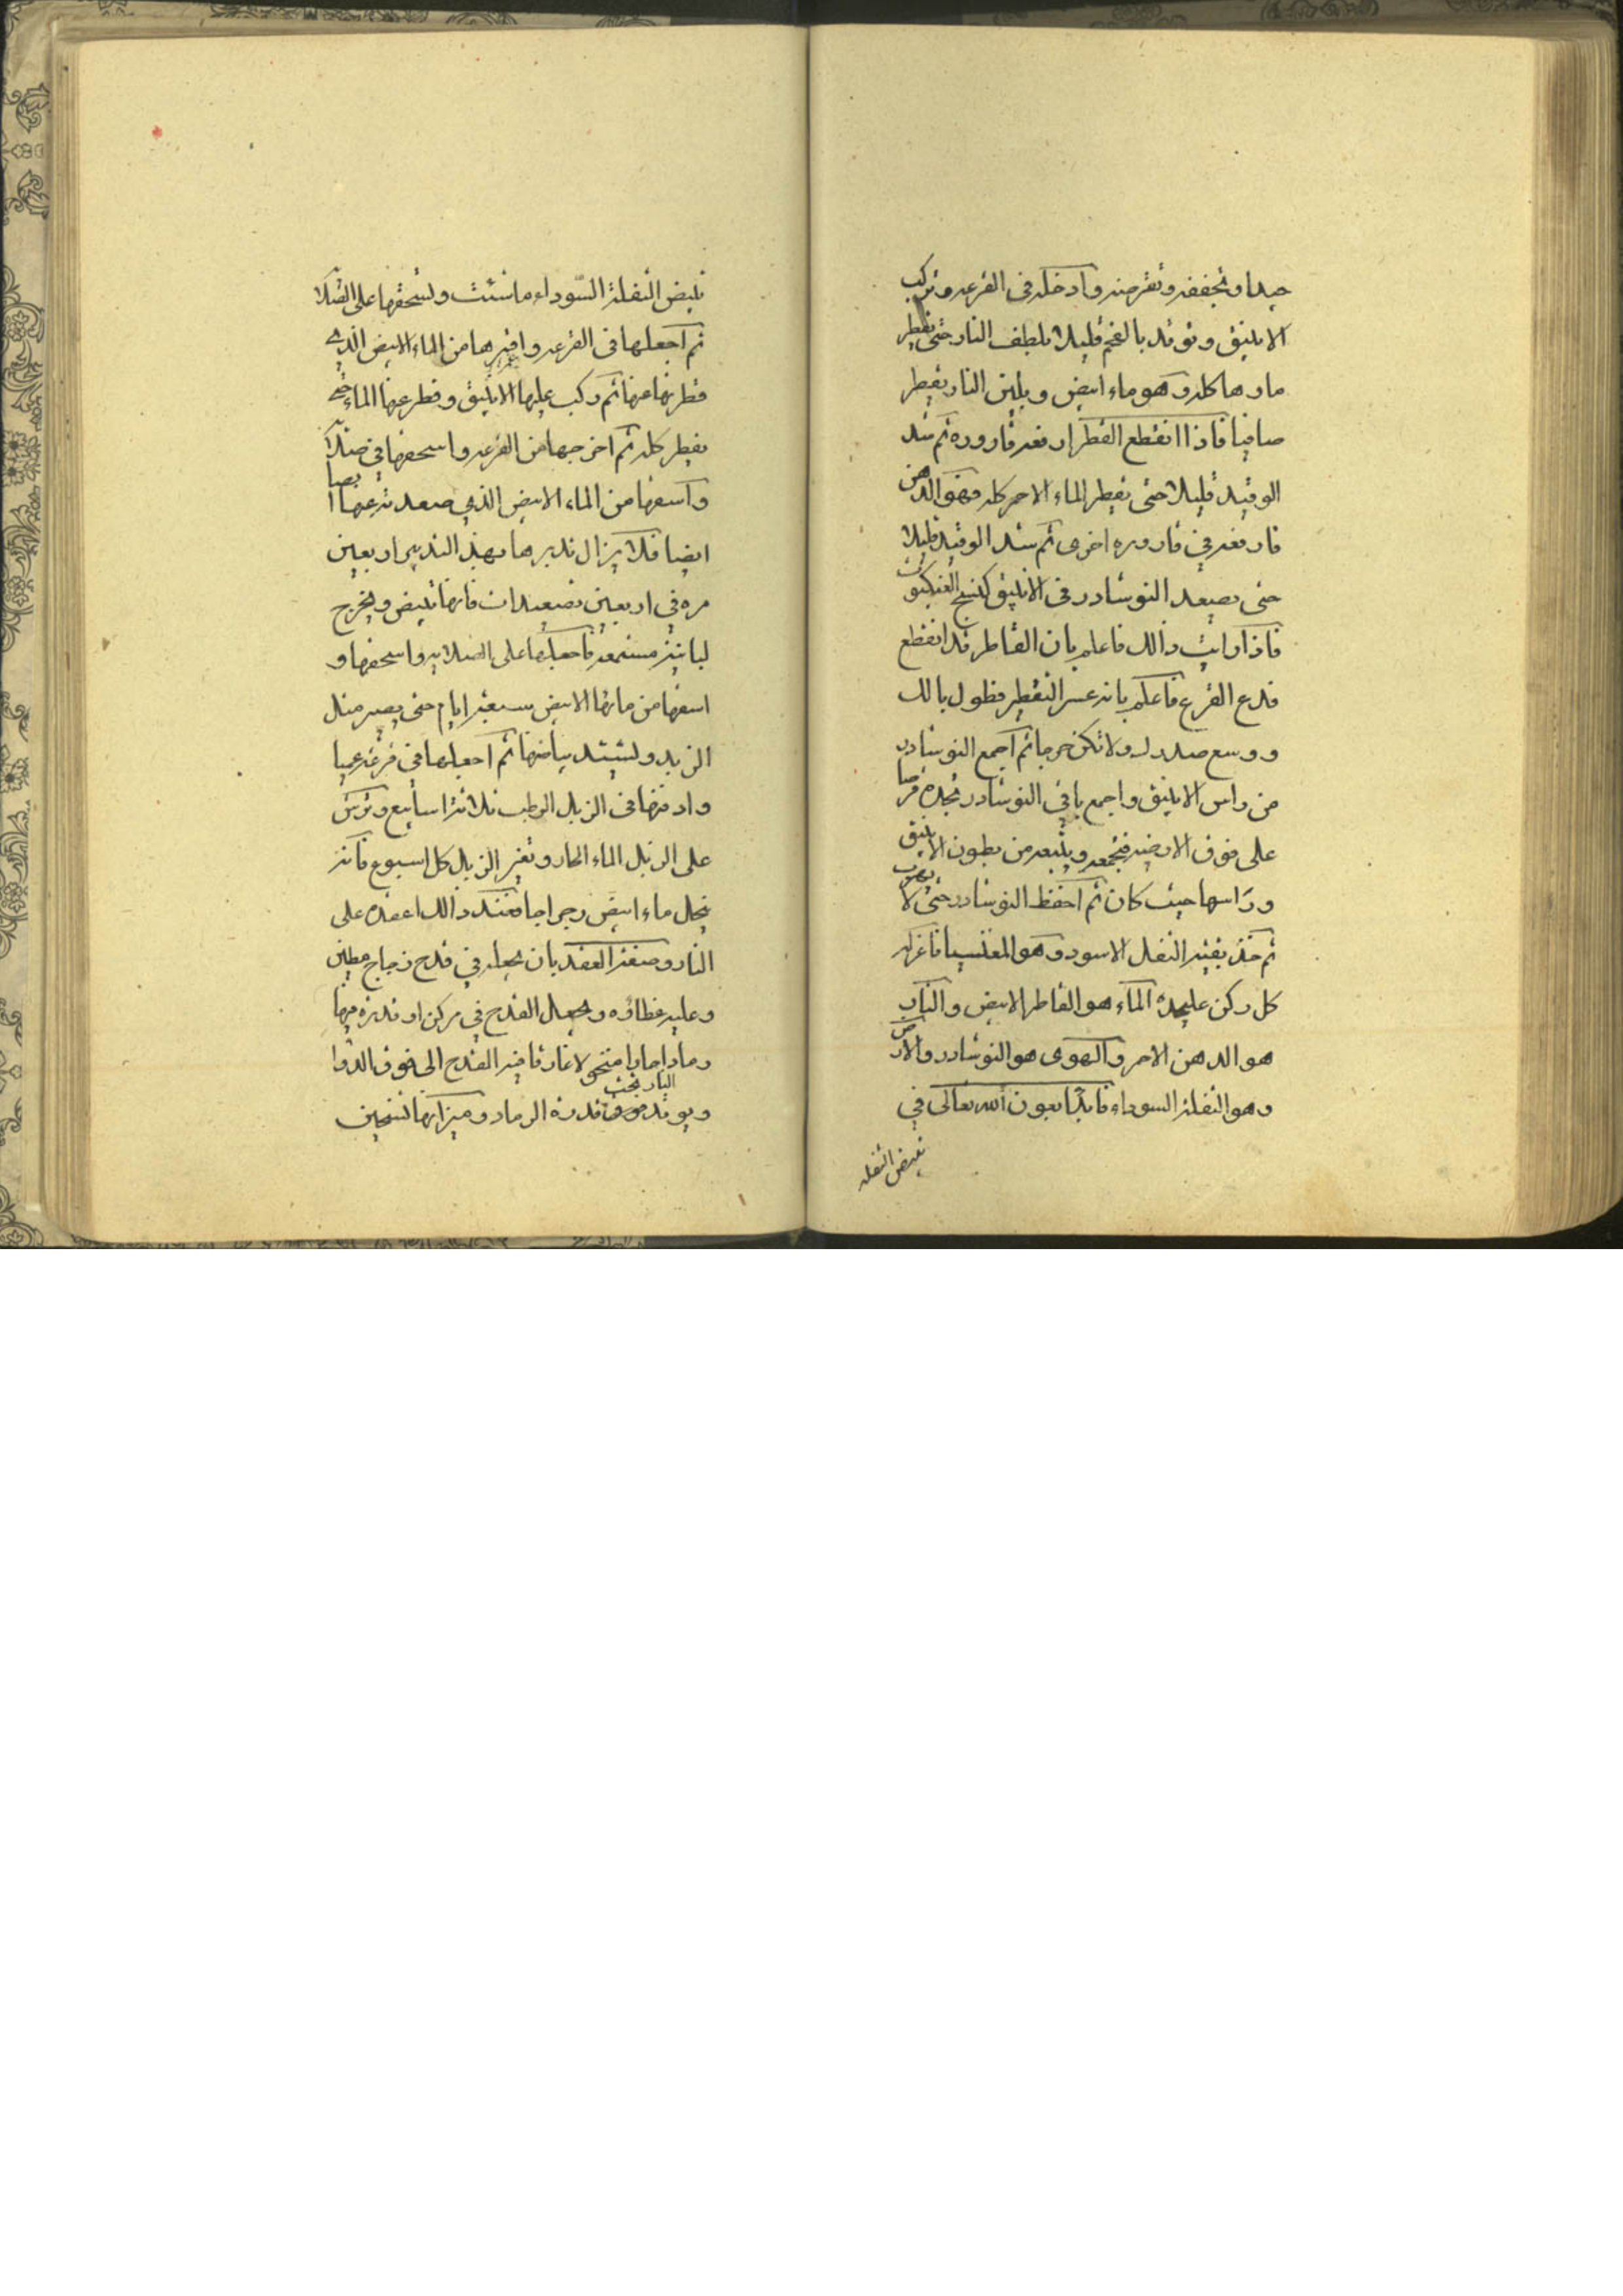 جيدا وتجففه وتقرصه وادخله في القرعه وتركب
الانبيق وتوقد بالفحم قليلا بلطف النار حتى يقطر
ماوها كله وهو ماء ابيض وبلين النار يقطر
صافيا فاذا انقطع القطر ارفعه قاروره ثم شد
الوقيد قليلا حتى يقطر الماء الاحمر كله فهو الدهن
فارفعه في قاروره اخرى ثم شد الوقيد قليلا
حتى يصعد النوشادر في الانبيق كنسج العنكبوت
فاذا رايت ذالك فاعلم بان القاطر قد انقطع
فدع القرع فاعلم بانه عسر التقطير فطول بالك
ووسع صدرك ولا تكن حرجا ثم اجمع النوشادر
من راس الانبيق واجمع باقي النوشادر تجده قرصا
على فوق الارضيه فتجمعه ويتبعه من بطون الانبيق
وراسها حيث كان ثم احفظ النوشادر حتى لا يهرب
ثم خذ بقيه الثفل الاسود وهو المغنيسيا فاعزله
كل ركن عليحدة الماء هو القاطر الابيض والنار
هو الدهن الاحمر والهوى هو النوشادر والارض
وهو الثفلة السوداء فابدا بعون الله تعالى في
تبيض الثفله
تبيض الثفلة السوداء ما شئت ولسحقها على الصلا
ثم اجعلها في القرعه واغمرها من الماء الابيض الذي
قطرتها منها ثم ركب عليها الانبيق وقطر عنها الماء حتى
يقطر كله ثم اخرجها من القرعه واسحقها في صلا
واسقها من الماء الابيض الذي صعدته عنها
ايضا فلا يزال تدبرها بهذ التدبير اربعين
مره في اربعين تصعيدات فانها تبيض ويخرج
فاجعلها على الصلايه واسحقها و
اسقها من مائها الابيض سبعة ايام حتى يصير مثل
الزبد وليشتد بياضها ثم اجعلها في قرعة عميا
وادفنها في الزبل الرطب ثلاثة اسابيع وترش
على الزبل الماء الحار وتغير الزبل كل اسبوع فانه
ينحل ماء ابيض رجراجا فعند ذالك اعقده على
النار وصفة العقد بان يجعله في قدح زجاج مطين
وعليه غطاؤه ويجعل القدح في مركن او قدرة فيها
رمادا حارا منخولا غارقا فيه القدح الى فوق الدوا
ويوقد النار تحت قدرة الرماد وميزانها تسخين